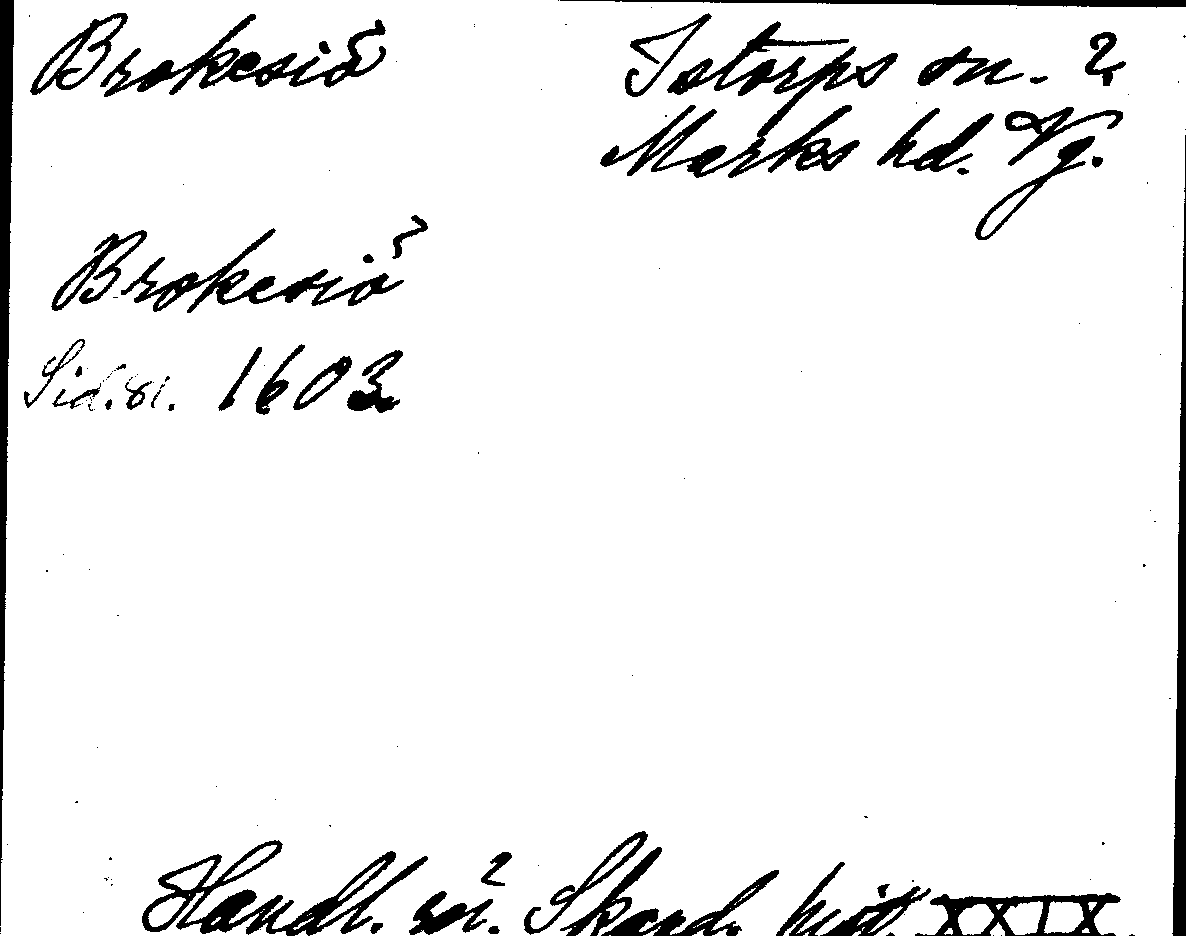 Brokesiö
Istorps sn. ?
Marks hd. Vg.
Brokesiö
Sid. 81. 1603.
Handl. rör. Skand. hist. XXIX.